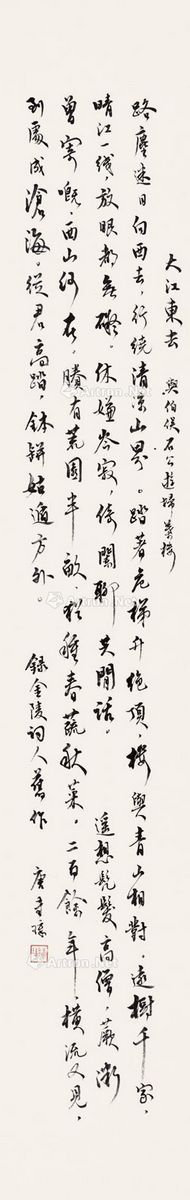 大江東去 與伯俟石公遊掃葉樓
路塵迷日向西去，行繞清涼山界。踏著危梯升絕頂，樓與青山相對。遠樹千家，
晴江一綫，放眼都無礙。休嫌岑寂，倚闌聊共閒話。 遥想髡髮高僧，蕨薇
曾寄慨，西山何在，賸有荒園半畝，猶種春蔬秋菜。二百餘年，橫流又見，
到處成滄海。從君高踏，鉢缾姑適方外。
錄金陵詞人舊作 唐圭璋